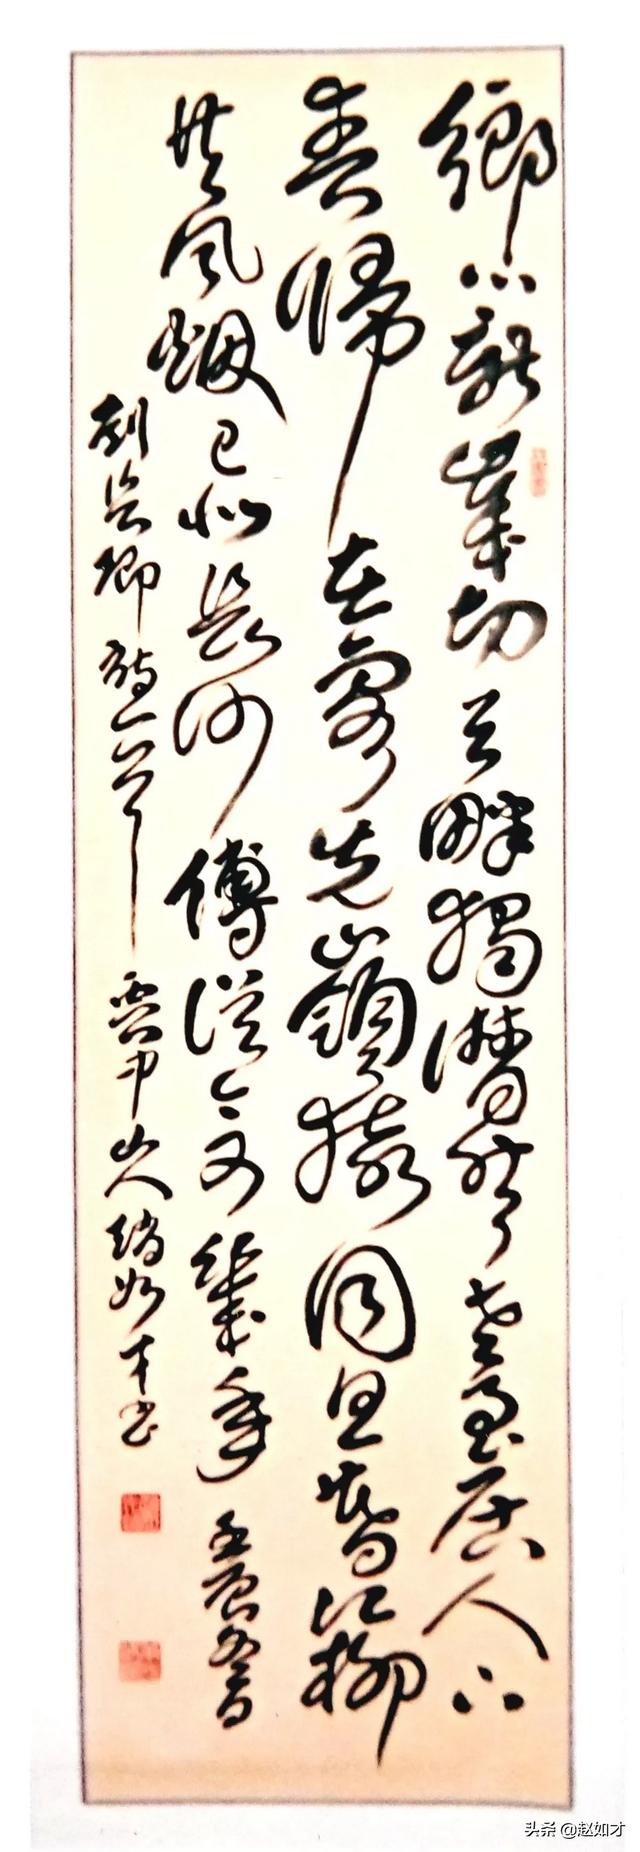 鄉心新歲切天畔獨潸然老至居人下
春歸在客先嶺猿同旦暮江柳
共風烟已似長沙傅從今又幾年
劉長卿詩一首 山人趙如才書
头条 @赵如才